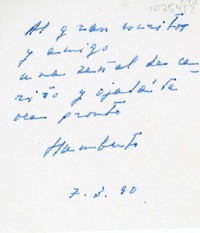 Al gran escritor
y amigo
una señal de ca-
riño y ojalá te
vea pronto
Humberto
7. 3. 90